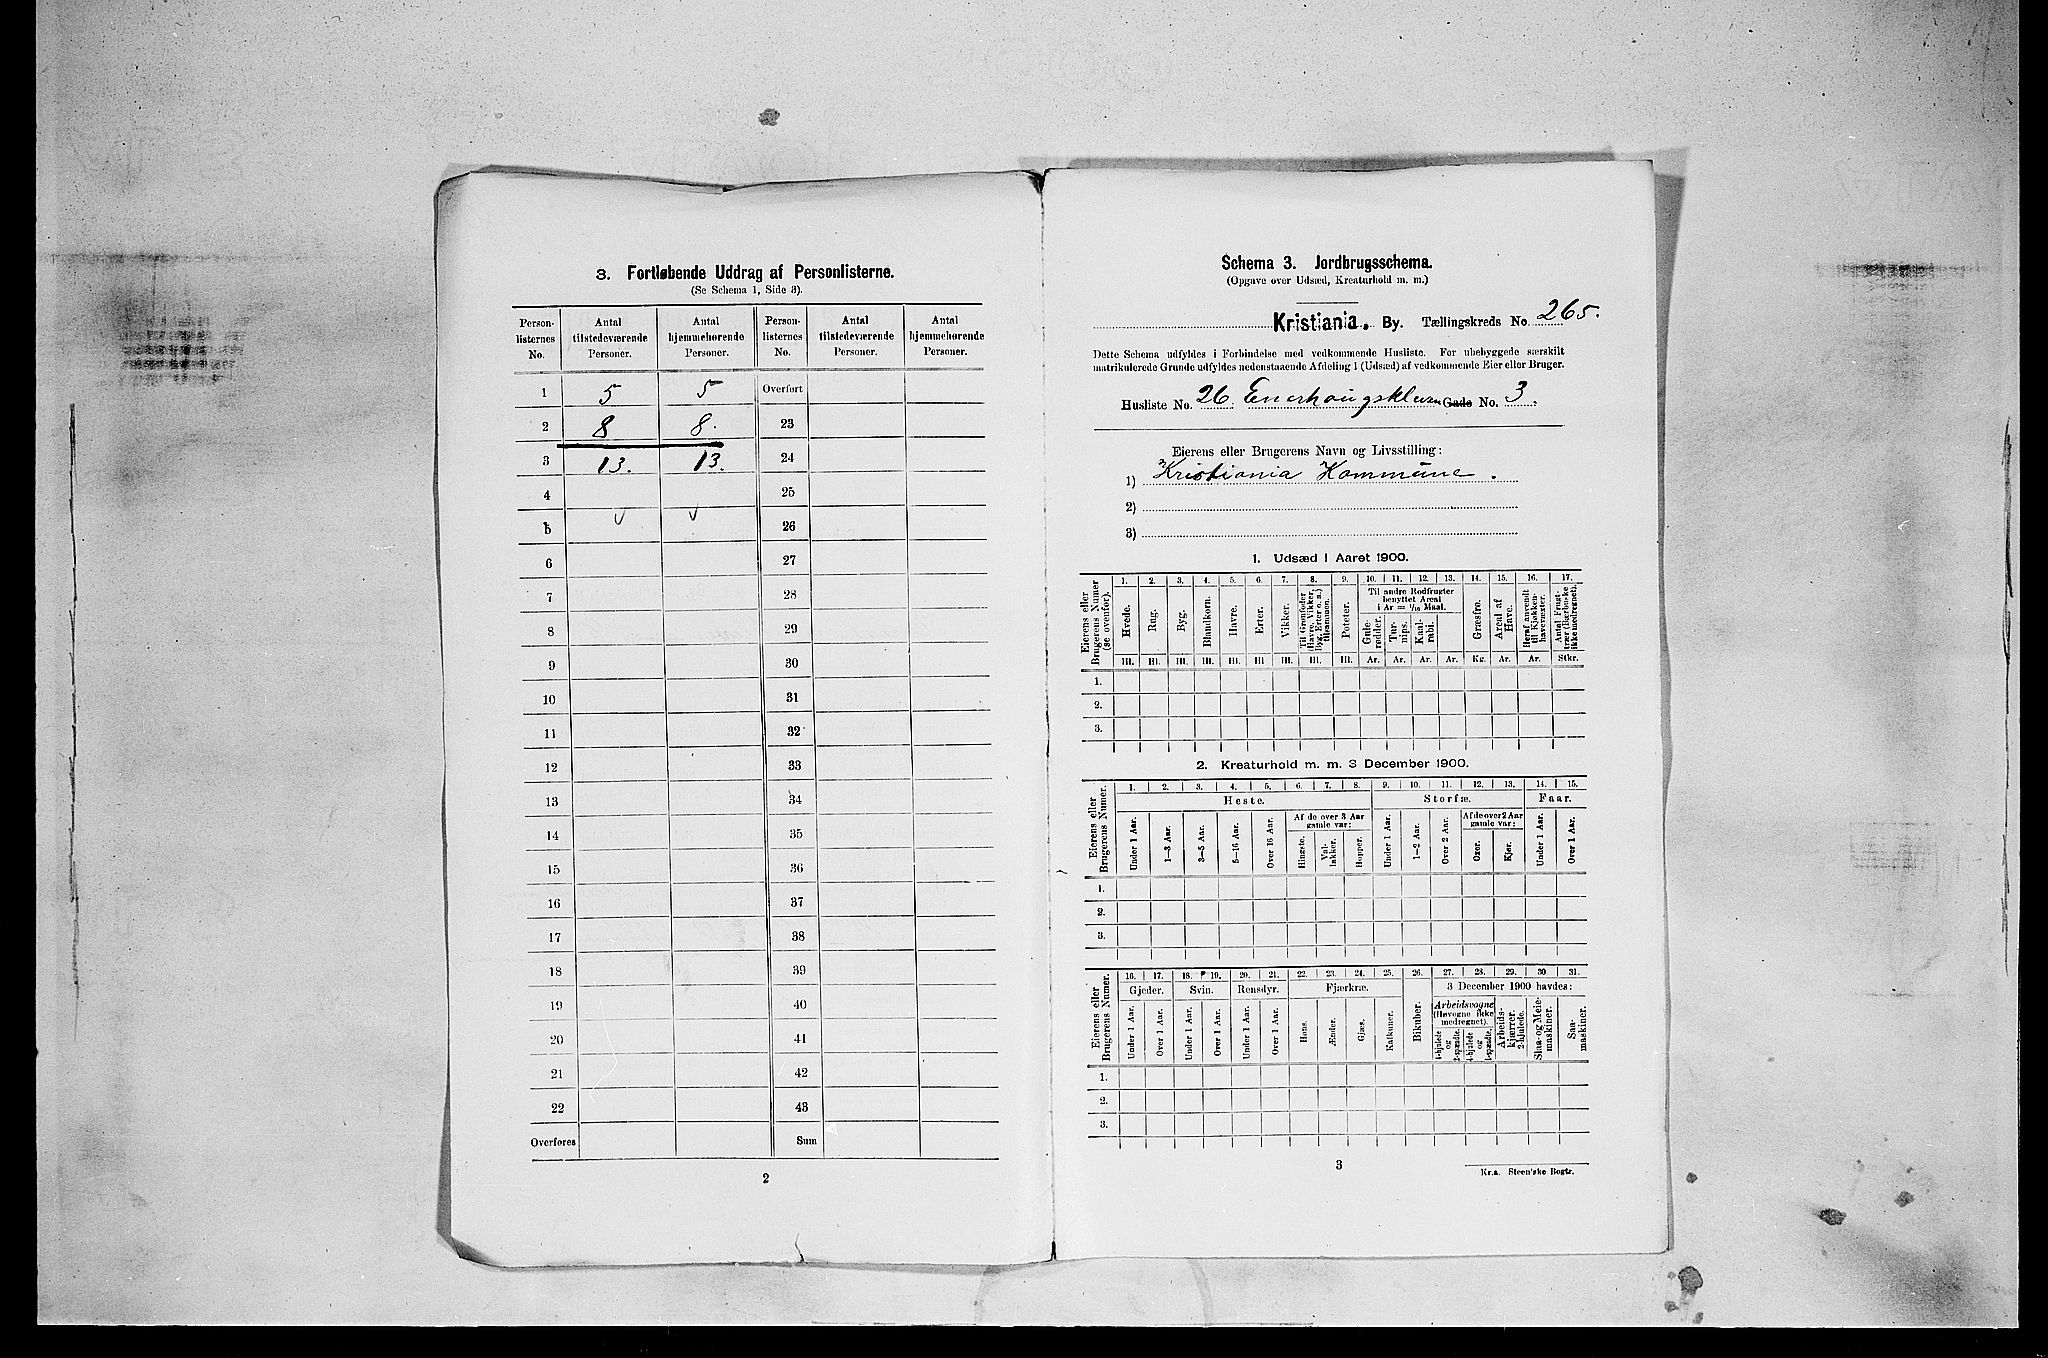 3. Fortløbende Uddrag af Personlisterne.
(Se Schema 1, Side 3).
Person-listernes No. | Antal tilstedeværende Personer. | Antal hjemmehørende Personer. | Person-listernes No. | Antal tilstedeværende Personer. | Antal hjemmehørende Personer.
1 5 5 Overført
2 8 8. 23
3 13. 13. 24
4 25
5 v v 26
6 27
7 28
8 29
9 30
10 31
11 32
12 33
13 34
14 35
15 36
16 37
17 38
18 39
19 40
20 41
21 42
22 43
Overføres Sum
2
Schema 3. Jordbrugsschema.
(Opgave over Udsæd, Kreaturhold m. m.)
Kristiania. By. Tællingskreds No. 265.
Dette Schema udfyldes i Forbindelse med vedkommende Husliste. For ubebyggede særskilt
matrikulerede Grunde udfyldes nedenstaaende Afdeling 1 (Udsæd) af vedkommende Eier eller Bruger.
Husliste No. 26. Enerhaugskleven Gade No. 3.
Eierens eller Brugerens Navn og Livsstilling:
1) Kristiania Kommune.
2)
3)
1. Udsæd i Aaret 1900.
Eierens eller Brugerens Numer (se ovenfor).
1. 2. 3. 4. 5. 6. 7. 8. 9. 10. 11. 12. 13. 14. 15. 16. 17.
Til andre Rodfrugter benyttet Areal i Ar = 1/10 Maal.
Hvede. Rug. Byg. Blandkorn. Havre. Erter. Vikker. Til Grønfoder (Havre, Vikker, Byg, Erter o. a.) tilsammen. Poteter. Gule-rødder. Tur-nips. Kaal-rabi. Græsfrø. Areal af Have. Heraf anvendt til Kjøkken-havevæxter. Antal Frugt-trær (Bærbuske ikke medregnet).
Hl. Hl. Hl. Hl. Hl. Hl. Hl. Hl. Hl. Ar. Ar. Ar. Ar. Kg. Ar. Ar. Stkr.
1.
2.
3.
2. Kreaturhold m. m. 3 December 1900.
Eierens eller Brugerens Numer.
1. 2. 3. 4. 5. 6. 7. 8. 9. 10. 11. 12. 13. 14. 15.
Heste. Storfæ. Faar.
Af de over 3 Aar gamle var: Af de over 2 Aar gamle var:
Under 1 Aar. 1—3 Aar. 3—5 Aar. 5—16 Aar. Over 16 Aar. Hingste. Val-lakker. Hopper. Under 1 Aar. 1—2 Aar. Over 2 Aar. Oxer. Kjør. Under 1 Aar. Over 1 Aar.
1.
2.
3.
Eierens eller Brugerens Numer.
16. 17. 18. 19. 20. 21. 22. 23. 24. 25. 26. 27. 28. 29. 30. 31.
Gjeder. Svin. Rensdyr. Fjærkræ. 3 December 1900 havdes:
Under 1 Aar. Over 1 Aar. Under 1 Aar. Over 1 Aar. Under 1 Aar. Over 1 Aar. Høns. Ænder. Gjæs. Kalkuner. Bikuber. Arbeidsvogne (Høvogne ikke medregnet). 4-hjulede og 2-spændte. 4-hjulede og 1-spændte. Arbeids-kjærrer. 2-hjulede. Slaa- og Meie-maskiner. Saa-maskiner.
1.
2.
3.
3
Kr.a. Steen'ske Bogtr.